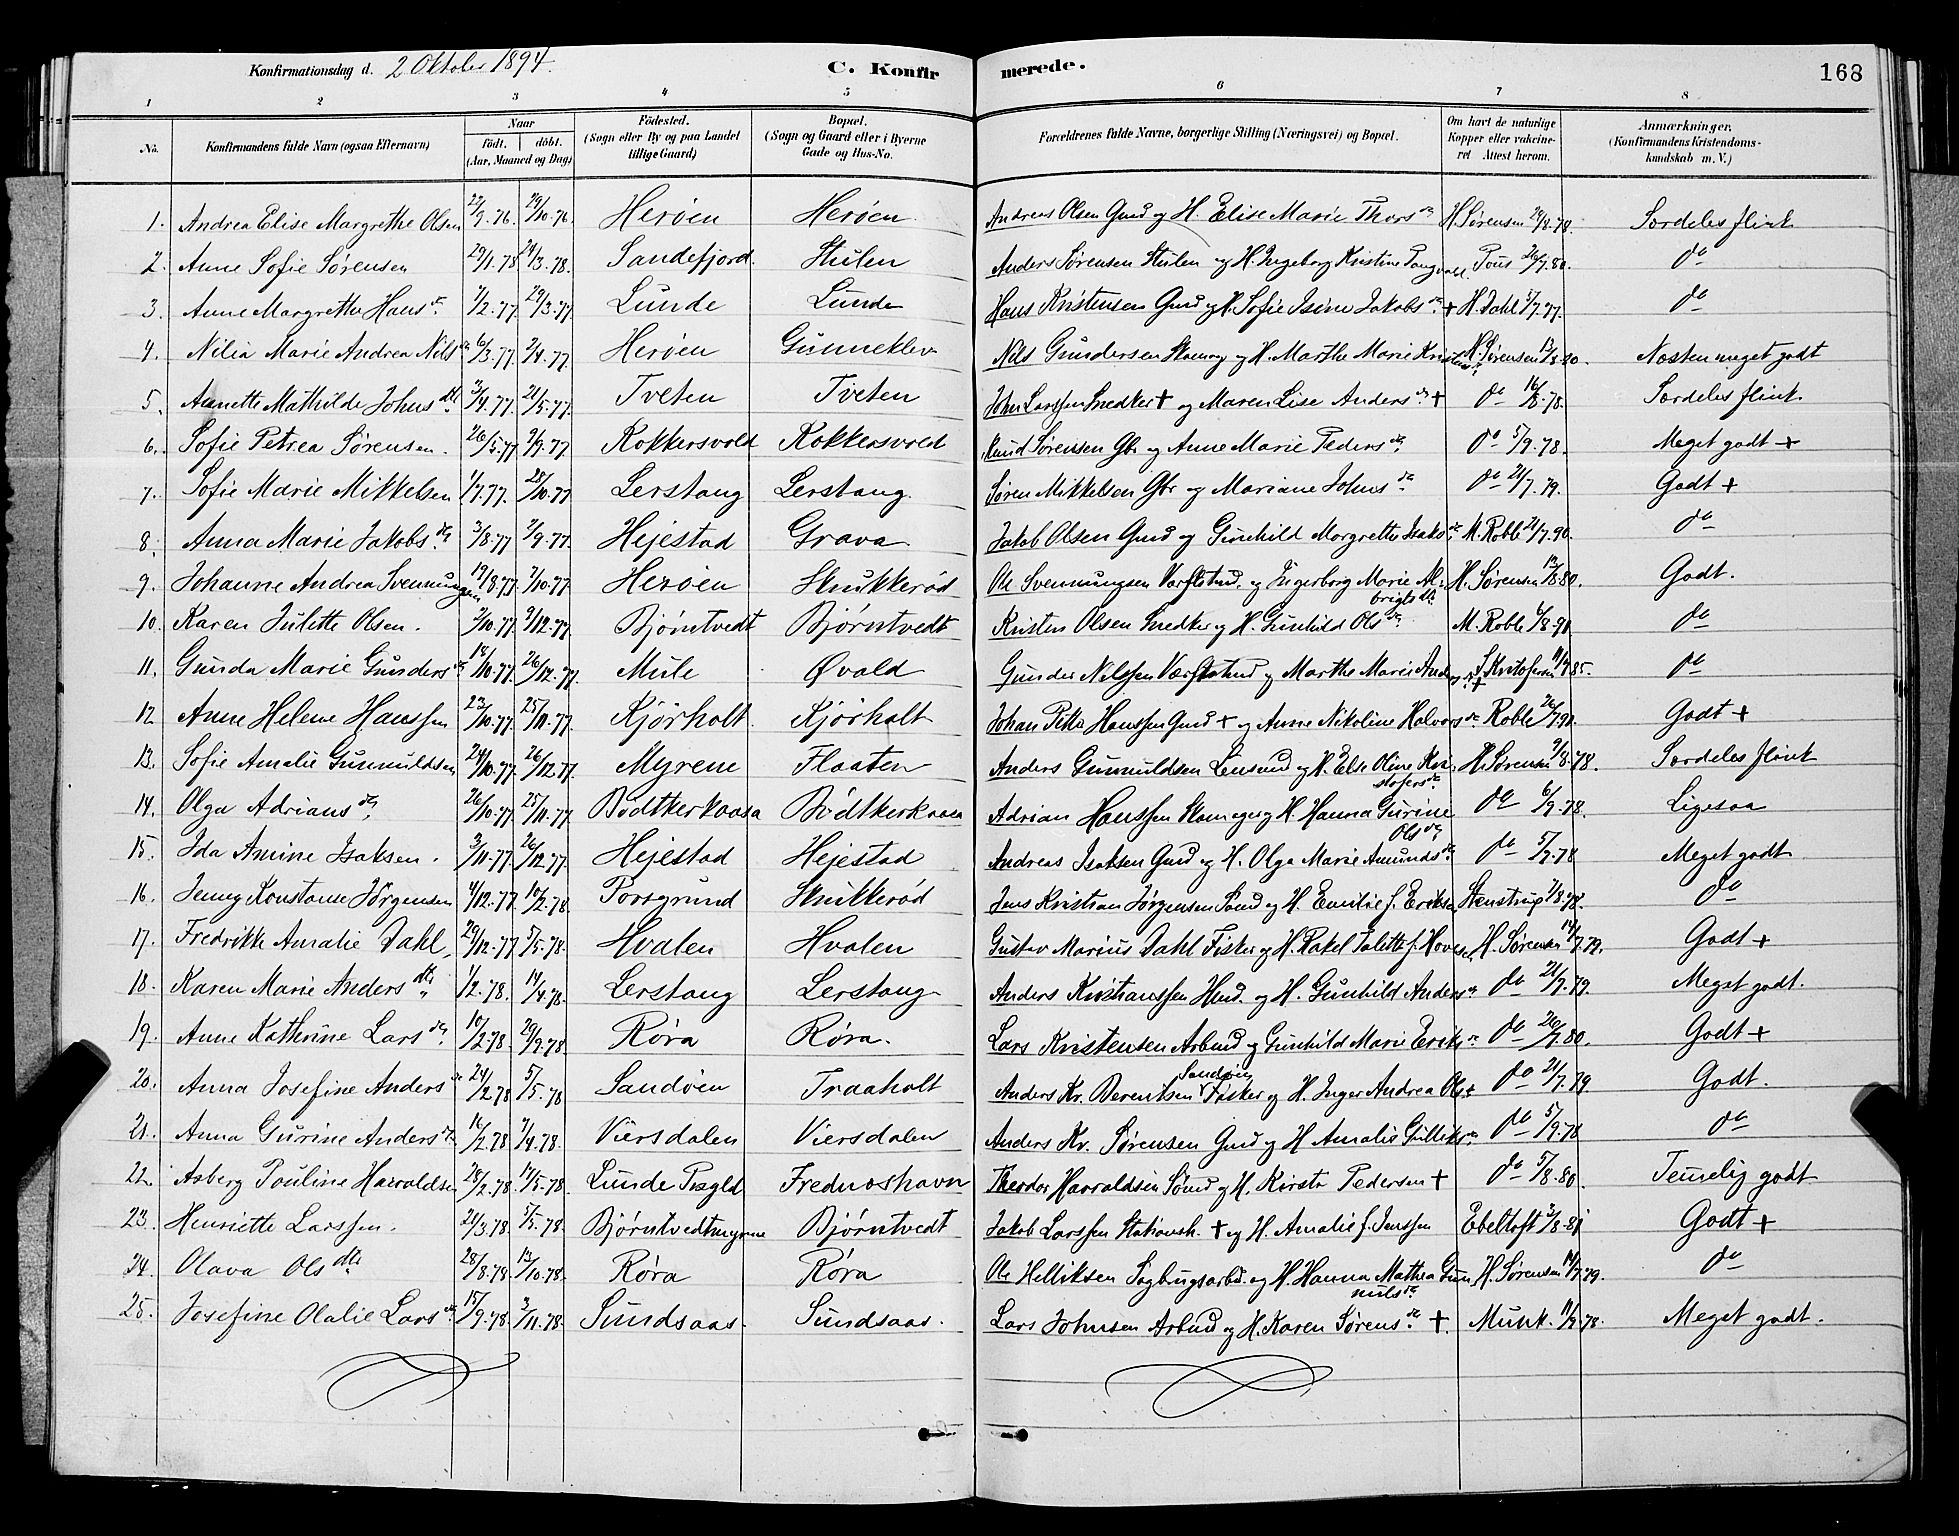 Konfirmationsdag d. 2 Oktober 1894. C. Konfirmerede. 168
1 2 3 4 5 6 7 8
No. Konfirmandens fulde Navn (ogsaa Efternavn) Naar födt. döbt. (Aar, Maaned og Dag) Födested. (Sogn eller By og paa Landet tillige Gaard) Bopæl. (Sogn og Gaard eller i Byerne Gade og Hus-No. Forældrenes fulde Navne, borgerlige Stilling (Næringsvei) og Bopæl. Om havt de naturlige Kopper eller vakcineret Attest herom. Anmærkninger. (Konfirmandens Kristendomskundskab m. V.)
1. Andrea Elise Margrethe Olsen 29/10.76 Herøen Herøen Andreas Olsen Gmd og H. Elise Marie Thors dr H. Sørensen Særdeles flink
2. Anne Sofie Sørensen 29/1.78 24/3.78. Sandefjord. Stulen Anders Sørensen Stulen og H. Ingeborg Kristine Pous 26/7.80. do
3. Anne Margrethe Hans dr. 29/3.77 Lunde Lunde Hans Kristensen Gmd og H. Sofie Isine Jakobs dr + H. Dahl do
4. Nilia Marie Andrea Nils dr 6/3.77. 2/4.77 Herøen Gunneklev Nils Gundersen og H. Marthe Marie H. Sørensen Næsten meget godt
5. Annette Mathilde Johns dtr 3/4.77. 21/5.77. Tveten Tveten John Larssen Snedker + og Maren Lise Anders dr + do 16/8.78. Særdeles flink
6. Sofie Petrea Sørensen. 26/5.77 9/9.77 Kokkersvold Kokkersvold Knud Sørensen Gbr og Anne Marie Peders dr do 5/9.78. Meget godt +
7. Sofie Marie Mikkelsen 1/7.77. 28/10.77 Lerstang Lerstang. Søren Mikkelsen Gbr og Mariane Johns dr do 21/7.79. Godt +
8. Anna Marie Jakobs dr 3/8.77 2/9.77 Hejestad Grava Jakob Olsen Gmd og Gunhild Margrethe Isaks dr M. Roble 21/7.90. do
9. Johanne Andrea Svennungsen 19/8.77 7/10.77 Herøen Skrukkerød Ole Svennungsen og Ingerborg Marie Albrigts dtr H. Sørensen Godt.
10. Karen Julette Olsen. 9/12.77 Bjørntvedt Bjørntvedt Kristen Olsen Snedker og H. Gunhild Ols dr M. Roble do
11. Gunda Marie Gunders dr 26/12.77. Mule Øvald Gunder Nilssen og Marthe Marie Anders dr + do
12 Anne Helene Hanssen 23/10.77 25/11.77 Kjørholt Kjørholt Johan Petter Hanssen Gmd + og Anne Nikoline Halvors dr Roble Godt +
13. Sofie Amalie Gunnuldsen 24/10.77. 26/12.77. Myrene Flaaten Anders Gunnuldsen og H. Else Oline Kristofers dr H. Sørensen 9/8.78. Særdeles flink
14. Olga Adrians dr 26/10.77 25/11.77 Bödtkerkaasa Bödtkerkaasa Adrian Hanssen og H. Hanna Gurine Ols dr do 6/9.78. Ligesaa
15. Ida Amine Isaksen. 3/11.77. 26/12.77. Hejestad Hejestad Andreas Isaksen Gmd og H. Olga Marie Amunds dr do 5/7.78 Meget godt
16. Jenny Konstanse Jörgensen 4/12.77. 10/2.78. Porsgrund Skrukkerød Jens Kristian Jørgensen Sømd og H. Emilie f. Eriksen Stenstrup do
17. Fredrikke Amalie Dahl 29/12.77 5/5.78. Hvalen Hvalen Gustav Marius Dahl Fisker og H. Rakel f. H. Sørensen Godt +
18. Karen Marie Anders dtr 1/2.78. 14/4.78. Lerstang Lerstang Anders Kristianssen Hmd. og H. Gunhild Anders dr do 21/7.79. Meget godt.
19. Anne Kathrine Lars dr 10/2.78. 29/9.78. Røra Røra. Lars Kristensen Arbmd og Gunhild Marie Eriks dr do 26/7.80. Godt +
20. Anna Josefine Anders dr 24/2.78 5/5.78 Sandöen Traaholt Anders Kr. Berentsen Sandøen Fisker og H. Inger Andrea Ols dr do 21/7.79 Godt.
21. Anna Gurine Anders dr 7/4.78. Viersdalen Viersdalen Anders Kr. Sørensen Gmd og H Amalie Gulliks dr do 5/9.78 do
22. Asberg Pauline Harraldsen 28/2.78. Lunde Præstegd Frednoshavn Theodor Harraldsen Sømd og H. Kirste Pedersen + do 5/8.80. Temelig godt
23. Henriette Larssen. 24/3.78. 5/5.78. Bjørntvedtmyrene Bjørntvedt Jakob Larssen + og H. Amalie f. Jenssen Ebeltoft 3/8.81 Godt +
24. Olava Ols dtr 28/8.78. 13/10.78. Røra Røra Ole Helliksen Sagbrugsarbd. og H. Hanna Mathea Gunnuls dr H. Sørensen do
25. Josefine Olalie Lars dr 15/9.78. 3/11.78. Sundsaas. Sundsaas. Lars Johnsen Arbmd og H. Karen Sørens dr +. Munk. Meget godt.